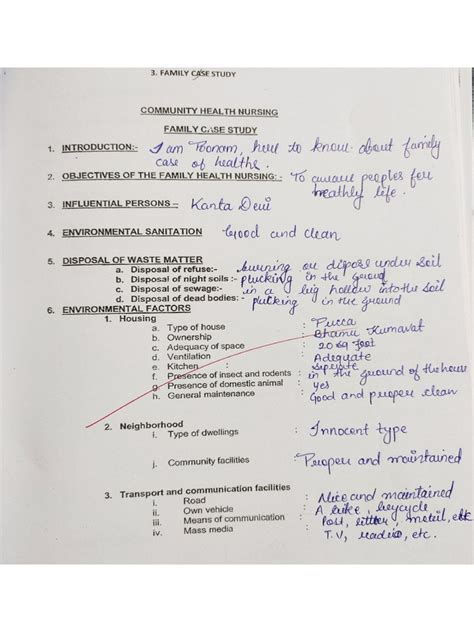 3. FAMILY CASE STUDY
COMMUNITY HEALTH NURSING
FAMILY CASE STUDY
1. INTRODUCTION:- I am Poonam, here to know about family
case of healths.
2. OBJECTIVES OF THE FAMILY HEALTH NURSING: :- To aware peoples for
heathly life.
3. INFLUENTIAL PERSONS – Kanta Devi
4. ENVIRONMENTAL SANITATION Good and clean
5. DISPOSAL OF WASTE MATTER
a. Disposal of refuse:- burning or dipose under Soil
b. Disposal of night soils :- plucking in the groud
c. Disposal of sewage:- in a big hollow into the Soil
d. Disposal of dead bodies: - putking in the ground
6. ENVIRONMENTAL FACTORS
1. Housing
a. Type of house : Pucca
b. Ownership : Bhamu Kumavat
c. Adequacy of space : 20 sq feet
d. Ventilation : Adequate
e. Kitchen : seperate
f. Presence of insect and rodents : in the ground of the house
g. Presence of domestic animal : yes
h. General maintenance : Good and proper clean
2. Neighborhood
i. Type of dwellings : Innocent type
j. Community facilities : Proper and maintained
3. Transport and communication facilities
i. Road : Nice and maintained
ii. Own vehicle : A bike, bycycle
iii. Means of communication : Post, letter, mobil, etc
iv. Mass media : T.V, radio, etc.